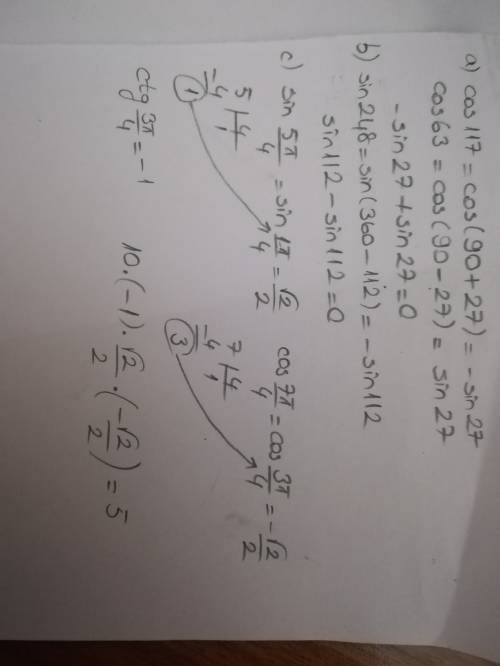 a) cos117 = cos(90+27) = -sin27
cos63 = cos(90-27) = sin27
-sin27 + sin27 = 0
b) sin248 = sin(360-112) = -sin112
sin112 - sin112 = 0
c) sin 5π/4 = sin 1π/4 = √2/2
cos 7π/4 = cos 3π/4 = -√2/2
5 | 4
-4 1
1
7 | 4
-4 1
3
ctg 3π/4 = -1
10·(-1)·√2/2·(-√2/2) = 5